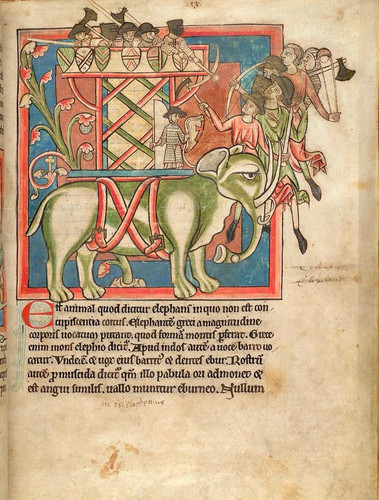 Est animal quod dicitur elephans in quo non est con
cupiscentia coitus. Elephante greci a magnitudine
corporis vocatum putant, quod formam montis preferat. Grece
enim mons elephio dicitur. Apud indos autem a voce barro vo
catur. Unde et vox eius barritus et dentes ebur. Rostrum
autem promuscida dicitur quoniam illo pabula ori admovet et
est angui similis, vallo munitur eburneo. Nullum